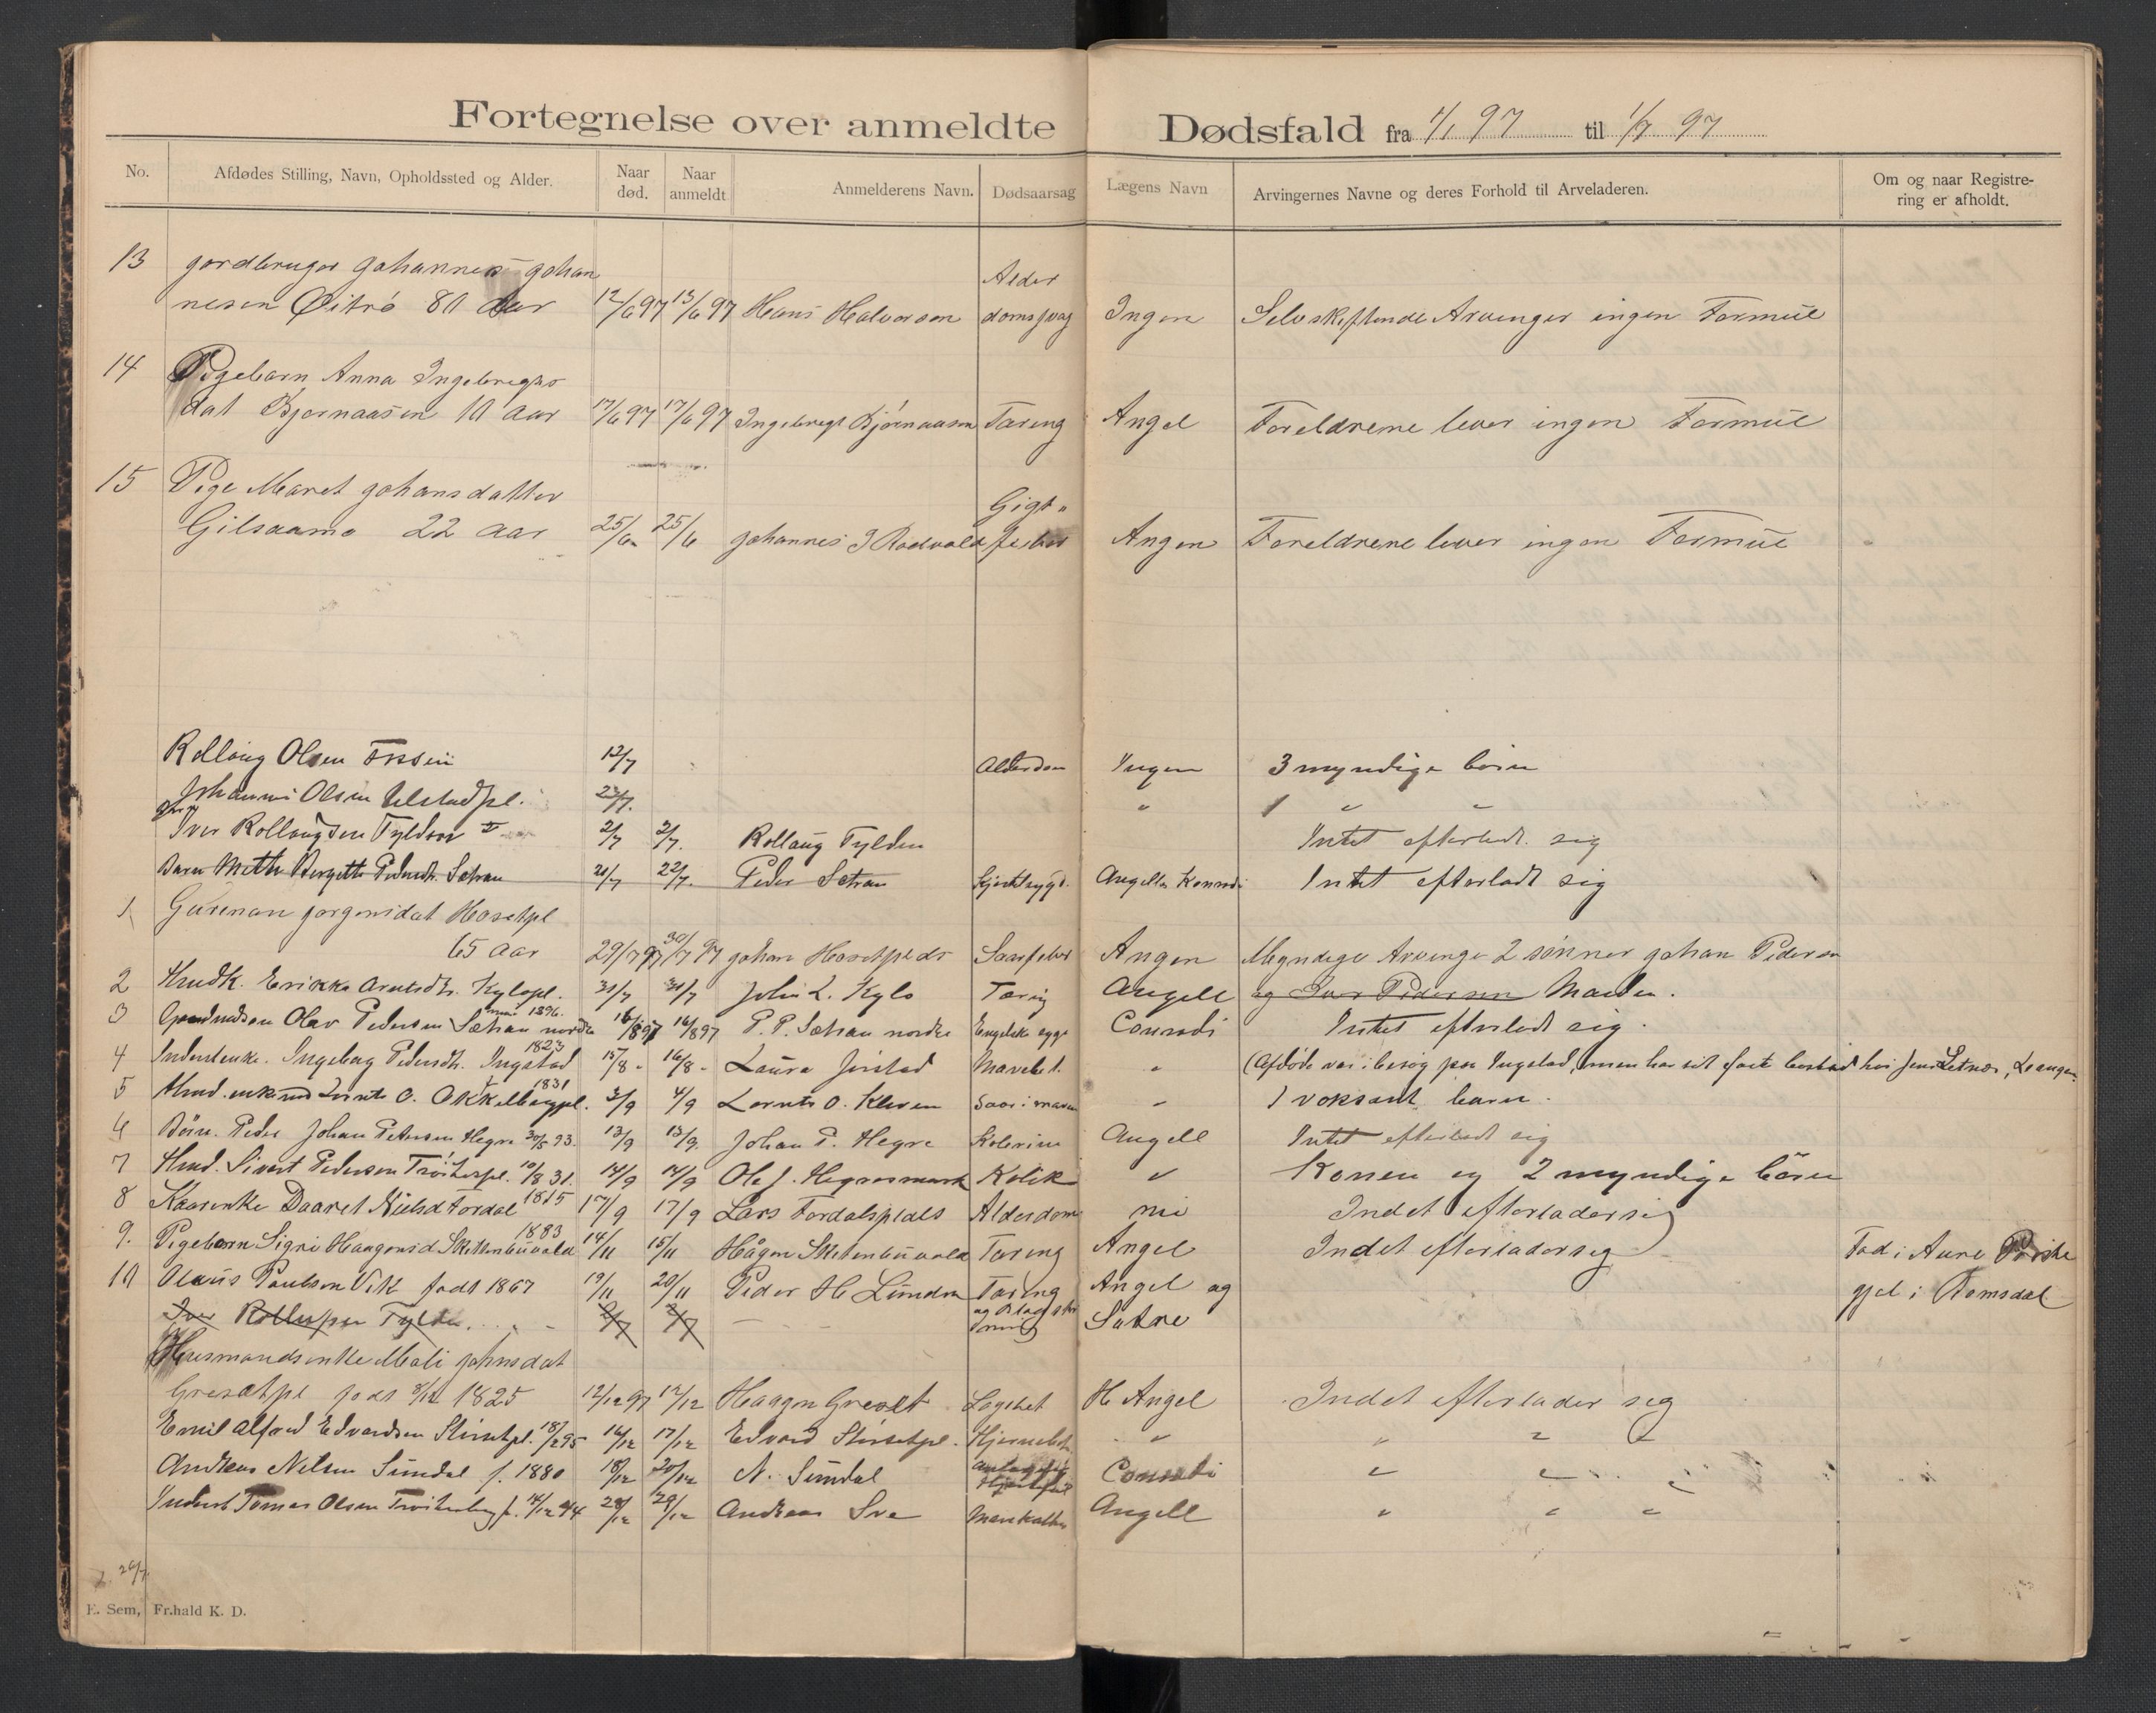 Fortegnelse over anmeldte Dødsfald fra 1/1 97 til 1/7 97
No. Afdødes Stilling, Navn, Opholdssted og Alder. Naar død. Naar anmeldt Anmelderens Navn. Dødsaarsag Lægens Navn Arvingernes Navne og deres Forhold til Arveladeren. Om og naar Registrering er afholdt.
13 gordbruger Johannes Johan Alder
nesen Øitrø 80 Aar 12/6 97 13/6 97 Hans Halvorsen domssvag Ingen Selvskiftende Arvenger ingen Formue
14 Pigebarn Anna Ingebregts
dat Bjørnaasen 10 Aar 17/6 97 17/6 97 Ingebregt Bjørnaasen Tæring Angel Foreldrene lever ingen Formue
15 Pige Maret Johansdatter Gigt"
Gilsaamo 22 aar 25/6 25/6 Johannes J feber Angen Foreldrene lever ingen Formue
Rollaug Olsen 12/7 Alderdom Ingen 3 myndige børn
Johannes Olsen Ulstadpl. 23/7. " 1 " "
Iver Rollaugsen Tylden 2/7 2/7. Rollaug Tylden Intet efterladt sig
Barn Mette Bergette Pedersdt. Sætran 21/7 22/7. Peder Sætran Angell og Konradi Intet efterladt sig
1 Gurenan Jorgensdat Hosetpl
65 aar 29/7 97 30/7 97 Johan Hosetplds Saarfeber Angen Myndige Arvenge 2 sønner Johan Pedersen
2 Husmk. Erikka Arntsdtr. Kylopl. 31/7 31/7 John L. Kylo Tæring Angell og Iver Pedersen Manden.
3 Olav Pedersen Sætran nordre 1896. 16/8 97 16/8 97 P. P. Sætran nordre Engelsk syge Conradi Intet efterladt sig.
4 Inderstenke. Ingeborg Pedersdtr. Ingstad 1823 15/8 - 16/8 - Laura Jørstad Mavebet. " (Afdøde var i besøg paa Ingstad, men har sit faste bosted hos Jens Letnes, Leangen.
5 Husm.enkemd Lornts O. Okkelbergpl. 1831 3/9 4/9 Lornts O. Kleven Saar i maven " 1 voksent barn.
6 Børn. Peder Johan Petersen Hegre 30/5 93. 13/9 13/9. Johan P. Hegre Kolerine Angell Intet efterladt sig
7 Husm. Sivert Pedersen Trøiterpl. 10/8 31. 14/9 14/9 Ole J. Hegresmark Kolik " Konen og 2 myndige børn
8 Kaarenke Daaret Nielsd Fordal 1815 17/9 17/9 Lars Fordalsplds Alderdom nei Indet efterladersig
9. Pigebarn Sigri Haagensd Skittenbuvold 1883 14/11 15/11 Hågen Skitenbuvold Tæring Angel Indet efterladersig Fød i Aure Præste
10 Olaus Paulsen Vik født 1867 19/11 20/11 Peder H Lunden Tæring Angel og gjel i Romsdal
Iver Tylden. 2/7 2/7 Sætre
Husmandsenke Mali Johnsdat
Gresetpl født 8/12 1825 12/12 97 12/12 Haagen Greset H Angel Indet efterlader sig
Emil Alfred Edvardsen 18/2 95 16/12 17/12 Edvard Hjernebet. " " " "
Andreas Nelsen Sundal f. 1880 18/12 20/12 N. Sundal Hjertefeil Conradi " "
Inderst Tomas Olsen f. 14/12 44 28/12 29/12 Andreas Sve Angell " " "
E. Sem, Fr.hald K. D.